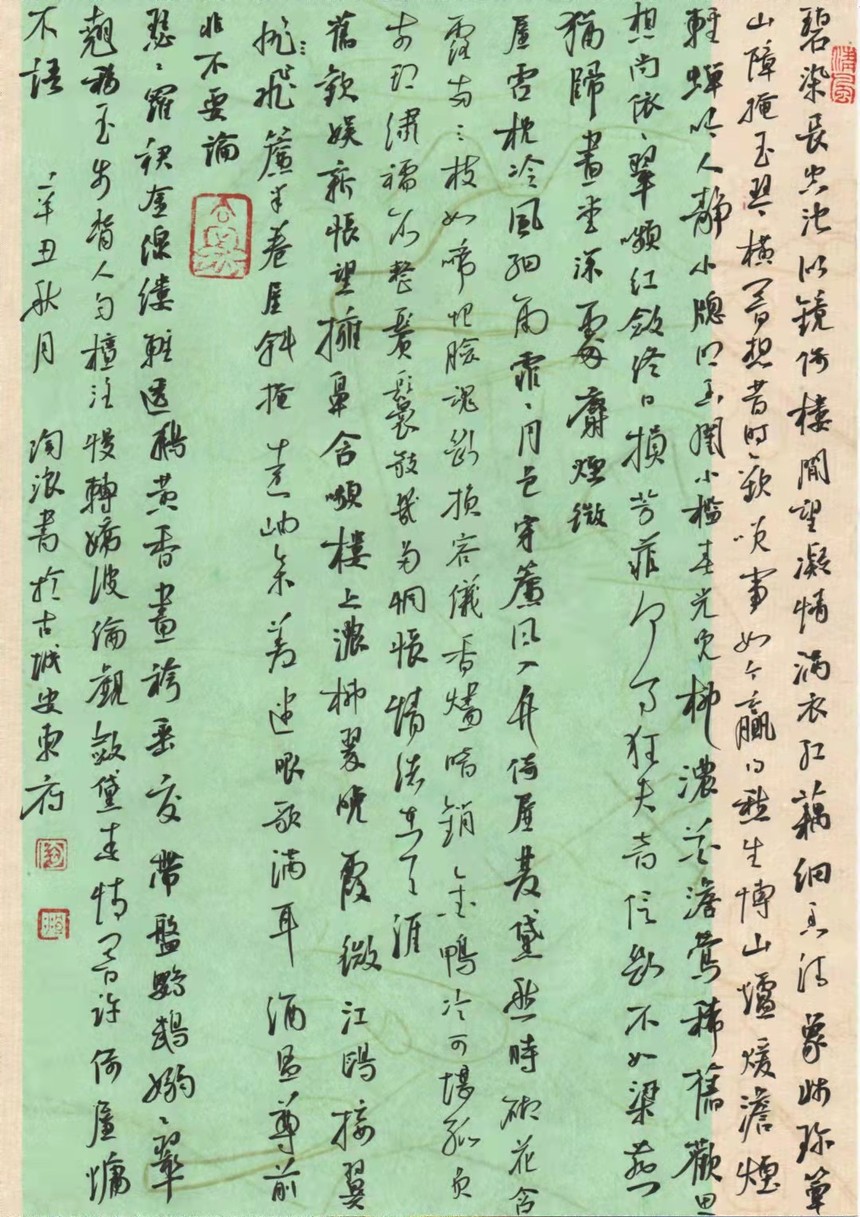 碧染長空池似鏡倚樓閒望凝情滿衣紅藕細香清象牀珍簟
山障掩玉琴橫暗想昔時歡笑事如今贏得愁生博山爐煖澹煙
輕蟬吟人靜小牕明幽閨小檻春光晚柳濃花澹鶯稀舊歡思
想尚依〻翠顰紅斂終日損芳菲何事狂夫音信斷不如梁燕
猶歸畫堂深處麝煙微
屏虛枕冷風細雨霏〻月色穿簾風入竹倚屏雙黛愁時砌花含
露兩三枝如啼恨臉魂斷損容儀香燼暗銷金鴨冷可堪孤負
前期繡襦不整鬢鬟欹幾多惆悵情緒在天涯
舊歡娛新悵望擁鼻含顰樓上濃柳翠晚霞微江鷗接翼
飛簾半卷屏斜掩遠岫參差迷眼歌滿耳酒盈尊前
非不要論
瑟〻羅裙金線縷輕透鵝黃香畫袴垂交帶盤鸚鵡嫋〻翠
翹移玉步背人勻檀注慢轉嬌波偷覷斂黛春情暗許倚屏慵
不語 辛丑秋月 淘浪書於古城安東府